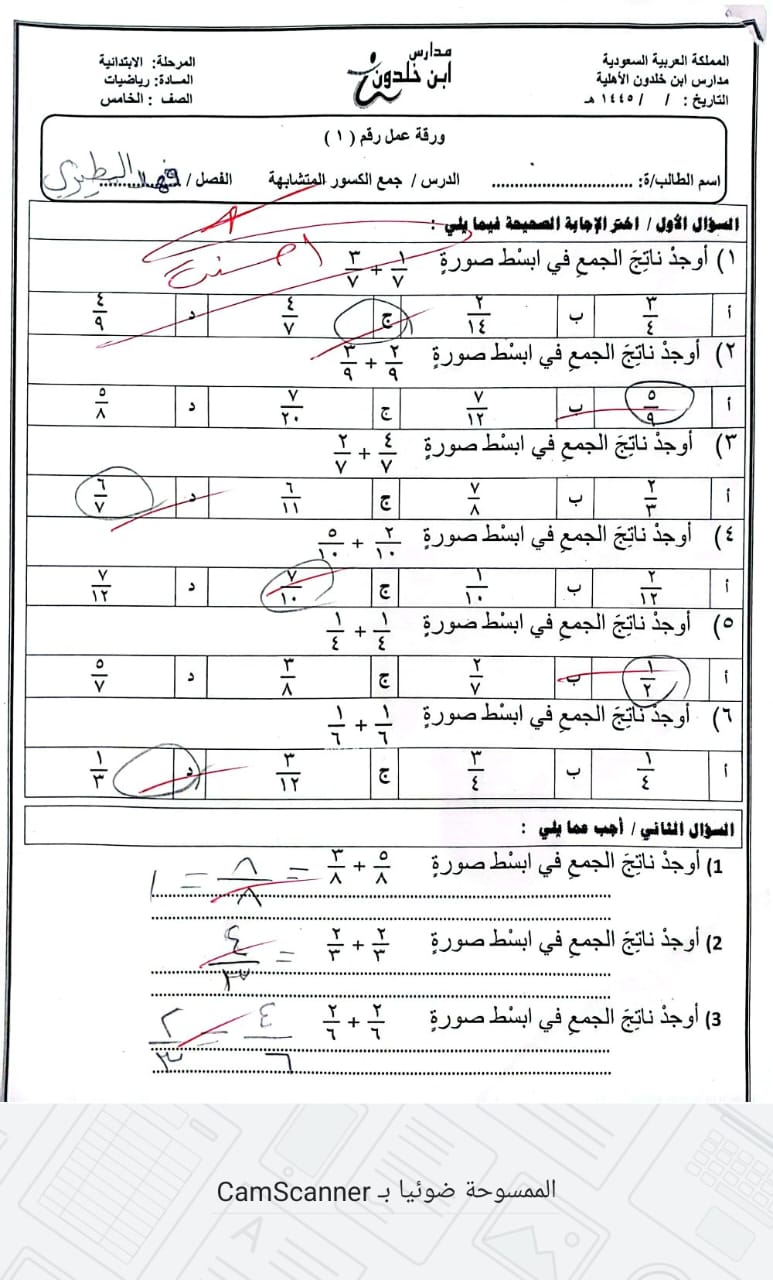 المملكة العربية السعودية
مدارس ابن خلدون الأهلية
التاريخ : / / ١٤٤٥ هـ
مدارس
ابن خلدون
المرحلة: الابتدائية
المـــادة: رياضيات
الصف : الخامس
ورقة عمل رقم ( ١ )
اسم الطالب/ة: ................................ الدرس / جمع الكسور المتشابهة الفصل / فهد البطيري
السؤال الأول / اختر الإجابة الصحيحة فيما يلي :
احسنت
١) أوجدْ ناتِجَ الجمعِ في ابسْط صورةٍ ١/٧ + ٣/٧
أ ٣/٤ ب ٢/١٤ ج ٤/٧ د ٤/٩
٢) أوجدْ ناتِجَ الجمعِ في ابسْط صورةٍ ٢/٩ + ٣/٩
أ ٥/٩ ب ٧/١٢ ج ٧/٢٠ د ٥/٨
٣) أوجدْ ناتِجَ الجمعِ في ابسْط صورةٍ ٤/٧ + ٢/٧
أ ٢/٣ ب ٧/٨ ج ٦/١١ د ٦/٧
٤) أوجدْ ناتِجَ الجمعِ في ابسْط صورةٍ ٢/١٠ + ٥/١٠
أ ٢/١٢ ب ١/١٠ ج ٧/١٠ د ٧/١٢
٥) أوجدْ ناتِجَ الجمعِ في ابسْط صورةٍ ١/٤ + ١/٤
أ ١/٢ ب ٢/٧ ج ٣/٨ د ٥/٧
٦) أوجدْ ناتِجَ الجمعِ في ابسْط صورةٍ ١/٦ + ١/٦
أ ١/٤ ب ٣/٤ ج ٣/١٢ د ١/٣
السؤال الثاني / أجب عما يلي :
1) أوجدْ ناتِجَ الجمعِ في ابسْط صورةٍ ٥/٨ + ٣/٨ = ٨/٨ = ١
2) أوجدْ ناتِجَ الجمعِ في ابسْط صورةٍ ٢/٣ + ٢/٣ = ٤/٣
3) أوجدْ ناتِجَ الجمعِ في ابسْط صورةٍ ٢/٦ + ٢/٦ ٤/٦ = ٢/٣
الممسوحة ضوئيا بـ CamScanner